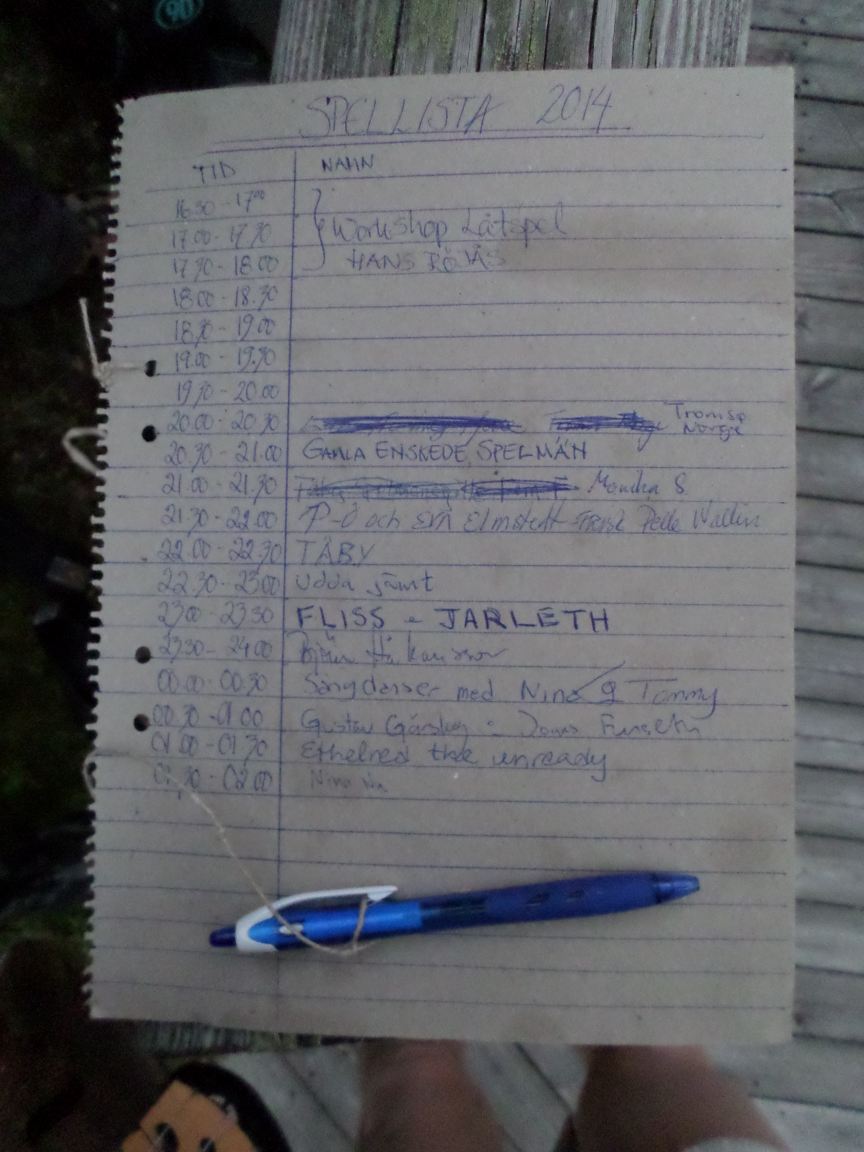 SPELLISTA 2014
TID NAMN
16.30 - 17.00
17.00 - 17.30 Workshop Låtspel
17.30 - 18.00 HANS RÖJÅS
18.00 - 18.30
18.30 - 19.00
19.00 - 19.30
19.30 - 20.00
20.00 - 20.30 Tromsø Norge
20.30 - 21.00 GAMLA ENSKEDE SPELMÄN
21.00 - 21.30 Monika S
21.30 - 22.00 P-O och Elmstedt Pelle Wallin
22.00 - 22.30 TÄBY
22.30 - 23.00 Udda jämt
23.00 - 23.30 FLISS - JARLETH
23.30 - 24.00 Björn Håkansson
00.00 - 00.30 Sångdanser med Nina & Tommy
00.30 - 01.00 Gustav
01.00 - 01.30 Ethelred the unready
01.30 - 02.00 Nina